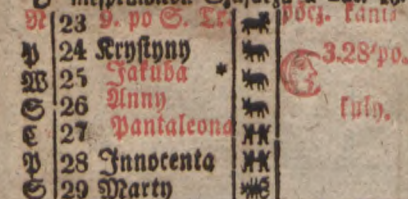 N 23 9. po S. Tr. pocz. kanik
P 24 Krystyny 3.28 po.
W 25 Jakuba *
S 26 Anny
C 27 Pantaleona
P 28 Innocenta
S 29 Marty